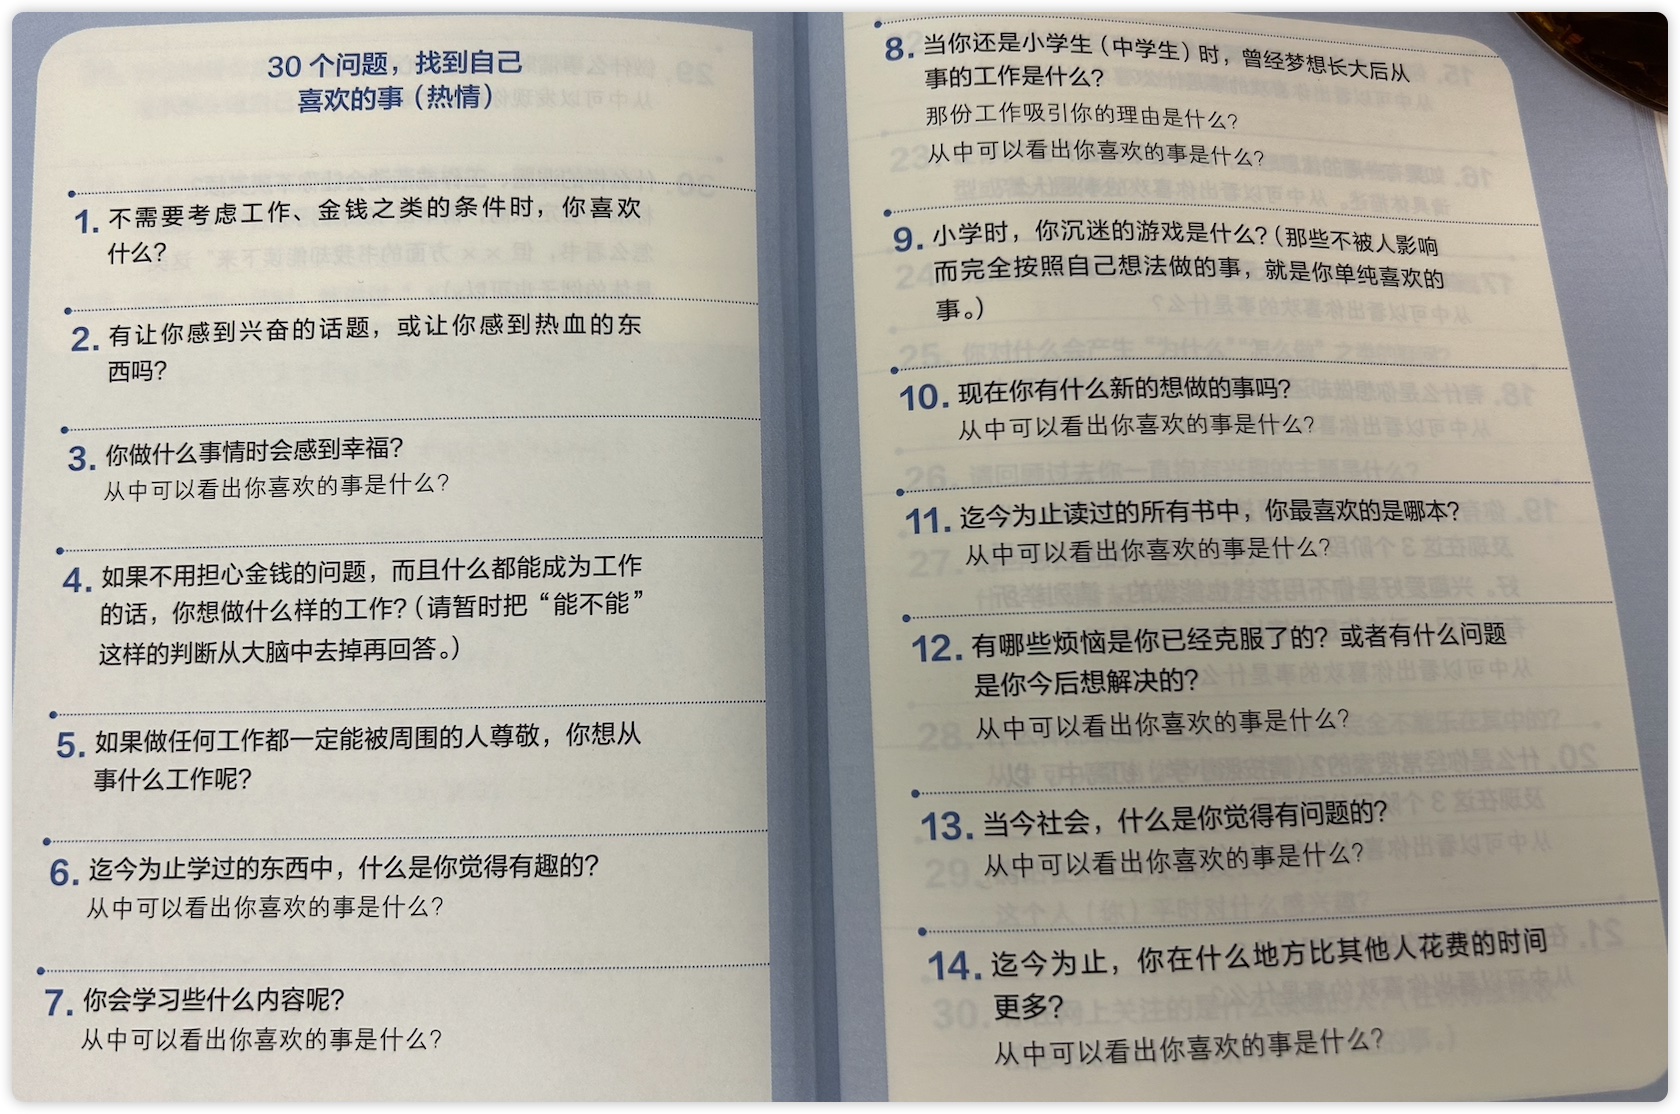 30 个问题，找到自己
喜欢的事（热情）
1. 不需要考虑工作、金钱之类的条件时，你喜欢
什么？
2. 有让你感到兴奋的话题，或让你感到热血的东
西吗？
3. 你做什么事情时会感到幸福？
从中可以看出你喜欢的事是什么？
4. 如果不用担心金钱的问题，而且什么都能成为工作
的话，你想做什么样的工作？（请暂时把“能不能”
这样的判断从大脑中去掉再回答。）
5. 如果做任何工作都一定能被周围的人尊敬，你想从
事什么工作呢？
6. 迄今为止学过的东西中，什么是你觉得有趣的？
从中可以看出你喜欢的事是什么？
7. 你会学习些什么内容呢？
从中可以看出你喜欢的事是什么？
8. 当你还是小学生（中学生）时，曾经梦想长大后从
事的工作是什么？
那份工作吸引你的理由是什么？
从中可以看出你喜欢的事是什么？
9. 小学时，你沉迷的游戏是什么？（那些不被人影响
而完全按照自己想法做的事，就是你单纯喜欢的
事。）
10. 现在你有什么新的想做的事吗？
从中可以看出你喜欢的事是什么？
11. 迄今为止读过的所有书中，你最喜欢的是哪本？
从中可以看出你喜欢的事是什么？
12. 有哪些烦恼是你已经克服了的？或者有什么问题
是你今后想解决的？
从中可以看出你喜欢的事是什么？
13. 当今社会，什么是你觉得有问题的？
从中可以看出你喜欢的事是什么？
14. 迄今为止，你在什么地方比其他人花费的时间
更多？
从中可以看出你喜欢的事是什么？